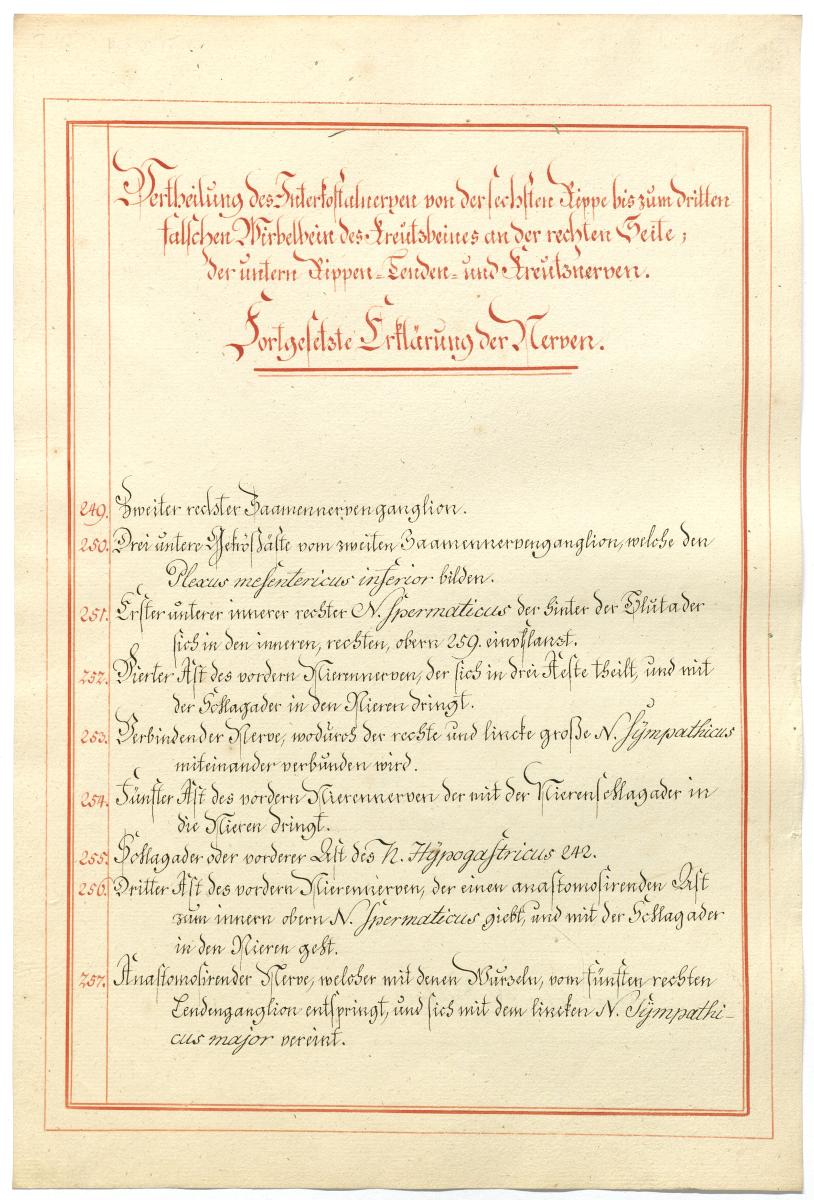 Vertheilung des Interkostalnerven von der sechsten Rippe bis zum dritten
falschen Wirbelbein des Kreutzbeines an der rechten Seite;
der untern Rippen- Lenden- und Kreutznerven.
Fortgesetzte Erklärung der Nerven.
249. Zweiter rechter Saamennervenganglion.
250. Drei untere Gekrößäste vom zweiten Saamennervenganglion, welche den
Plexus mesentericus inferior bilden.
251. Erster unterer innerer rechter N. spermaticus der hinter der Blutader
sich in den inneren, rechten, obern 259. einpflanzt.
252. Vierter Ast des vordern Nierennerven, der sich in drei Aeste theilt, und mit
der Schlagader in den Nieren dringt.
253. Verbindender Nerve, wodurch der rechte und lincke große N. Sÿmpathicus
miteinander verbunden wird.
254. Fünfter Ast des vordern Nierennerven der mit der Nierenschlagader in
die Nieren dringt.
255. Schlagader oder vorderer Ast des N. Hÿpogastricus 242.
256. Dritter Ast des vordern Nierennerven, der einen anastomosirenden Ast
zum innern obern N. spermaticus giebt, und mit der Schlagader
in den Nieren geht.
257. Anastomosirender Nerve, welcher mit denen Wurzeln, vom fünften rechten
Lendenganglion entspringt, und sich mit dem lincken N. Sÿmpathi-
cus major vereint.